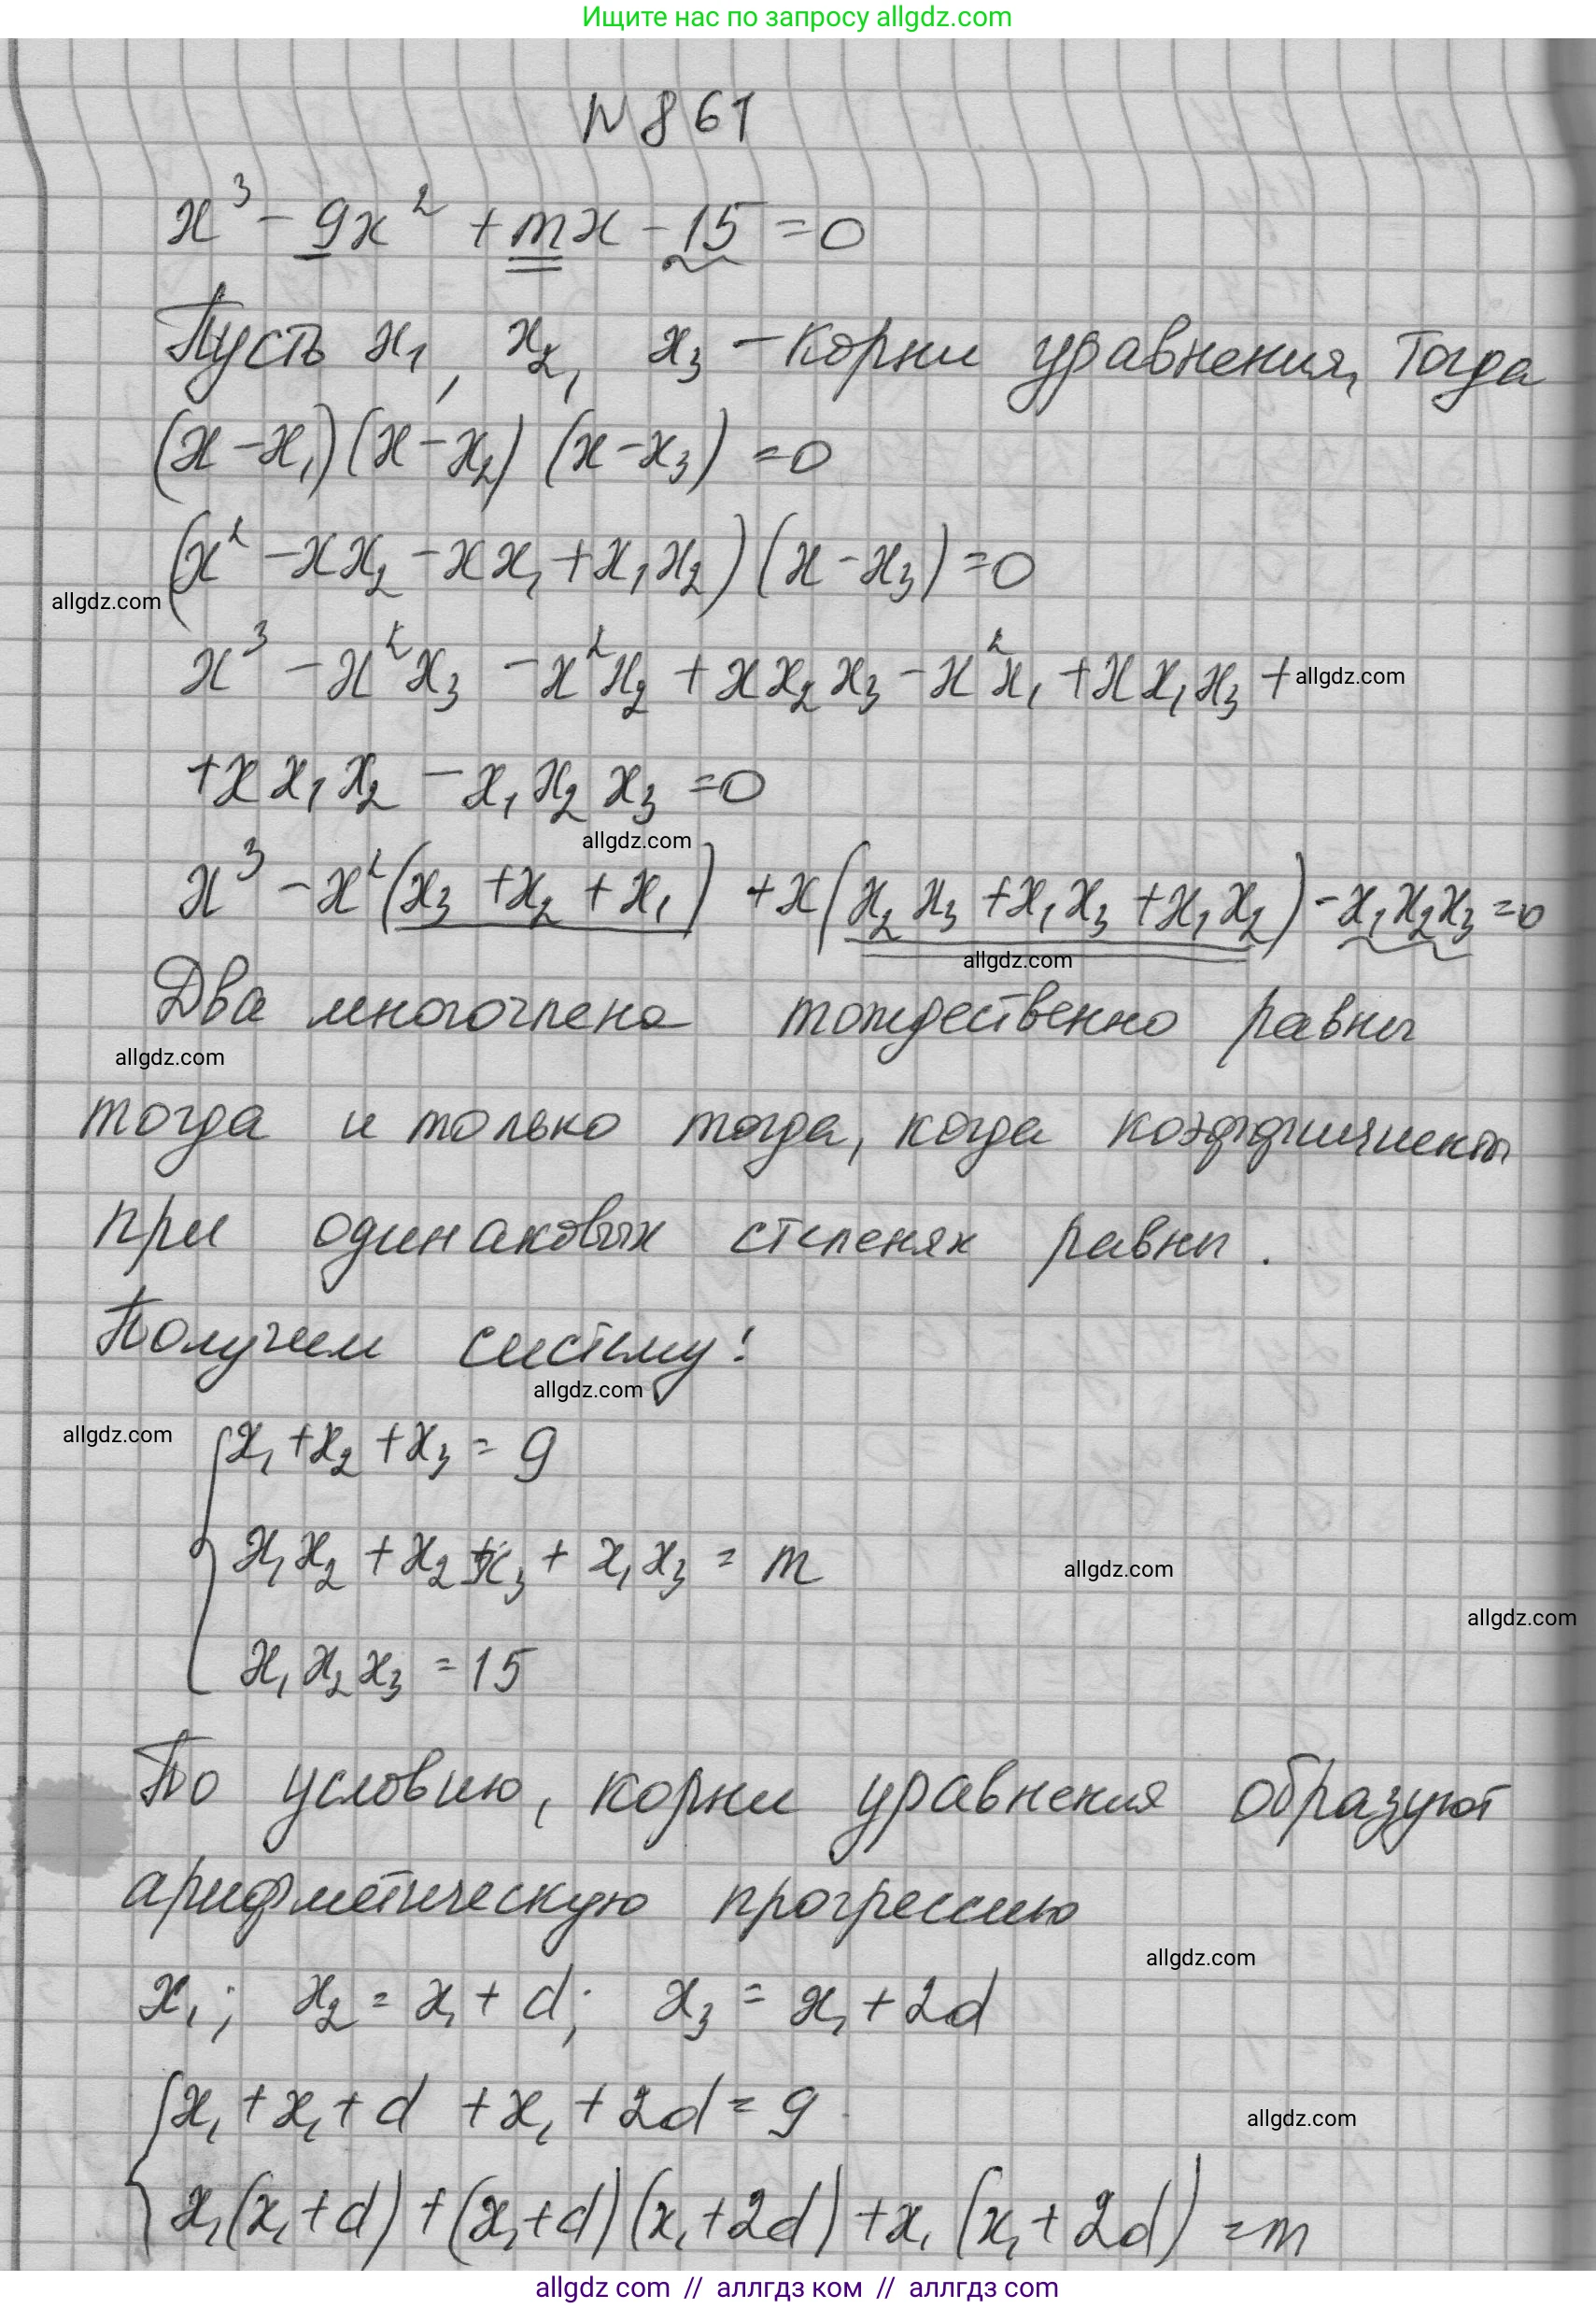 Ищите нас по запросу allgdz.com
N 861
x³ - 9x² + mx - 15 = 0
Пусть x₁, x₂, x₃ - корни уравнения, тогда
(x - x₁)(x - x₂)(x - x₃) = 0
(x² - xx₂ - xx₁ + x₁x₂)(x - x₃) = 0
allgdz.com
x³ - x²x₃ - x²x₂ + xx₂x₃ - x²x₁ + xx₁x₃ +
allgdz.com
+ xx₁x₂ - x₁x₂x₃ = 0
allgdz.com
x³ - x²(x₃ + x₂ + x₁) + x(x₂x₃ + x₁x₃ + x₁x₂) - x₁x₂x₃ = 0
allgdz.com
Два многочлена тождественно равны
allgdz.com
тогда и только тогда, когда коэффициенты
при одинаковых степенях равны.
Получим систему:
allgdz.com
allgdz.com
{ x₁ + x₂ + x₃ = 9
x₁x₂ + x₂x₃ + x₁x₃ = m
allgdz.com
allgdz.com
x₁x₂x₃ = 15
По условию, корни уравнения образуют
арифметическую прогрессию
allgdz.com
x₁; x₂ = x₁ + d; x₃ = x₁ + 2d
{ x₁ + x₁ + d + x₁ + 2d = 9
allgdz.com
x₁(x₁ + d) + (x₁ + d)(x₁ + 2d) + x₁(x₁ + 2d) = m
allgdz com // аллгдз ком // аллгдз com